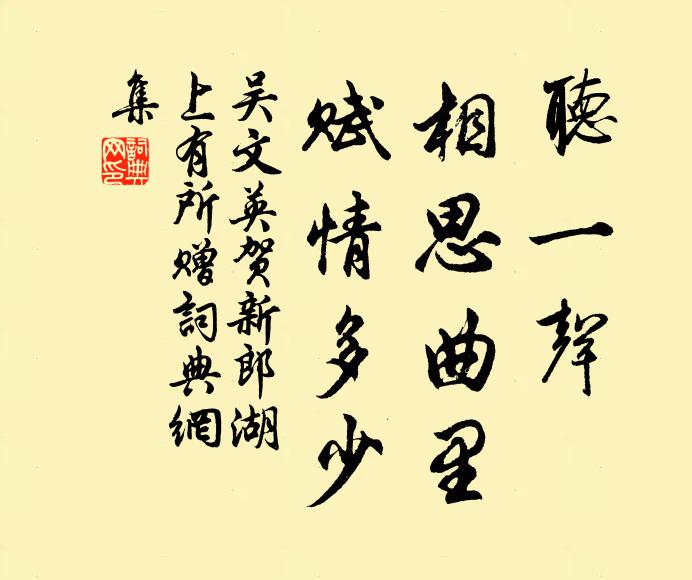 聽一聲
相思曲里
賦情多少
吴文英贺新郎湖
上有所赠詞典網
集
詞典
网印